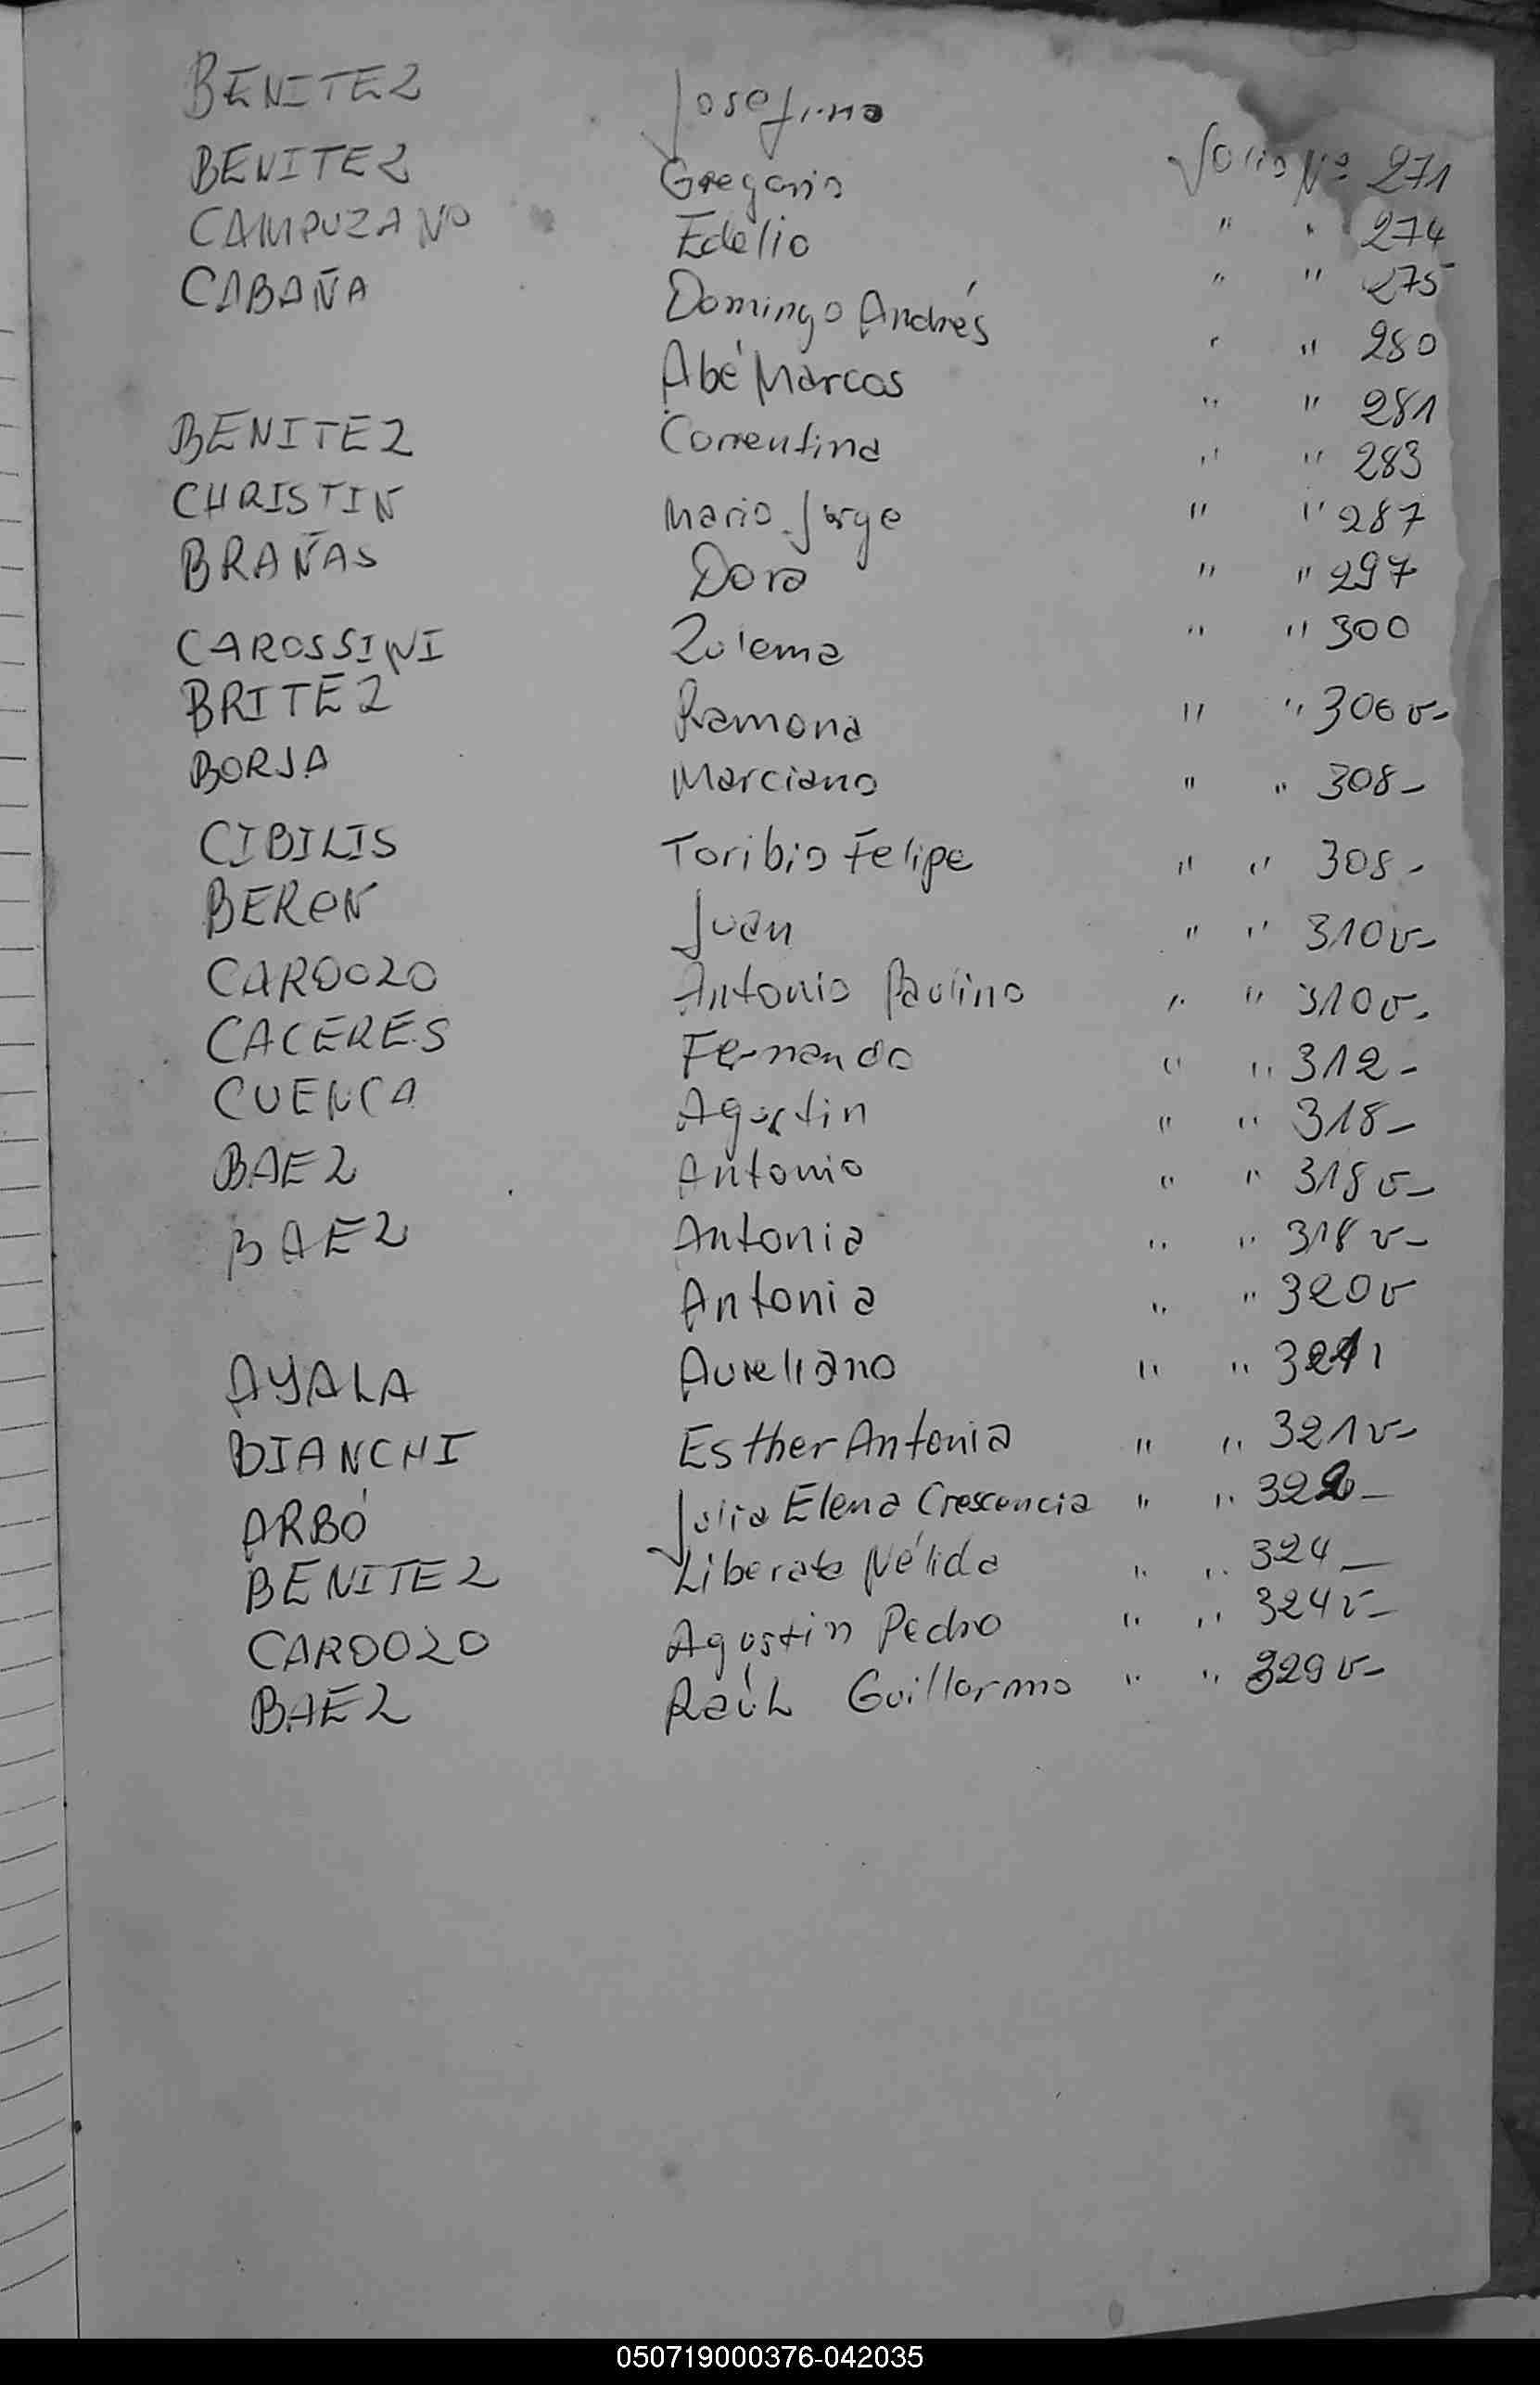 BENITEZ Josefina Folio Nº 271
BENITEZ Gregorio " " 274
CAMPUZANO Edelio " " 275
CABAÑA Domingo Andrés " " 280
Abé Marcos " " 281
BENITEZ Correntina " " 283
CHRISTIN Mario Jorge " " 287
BRAÑAS Dora " " 297
CAROSSINI Zulema " " 300
BRITEZ Ramona " " 306 v-
BORJA Marciano " " 308-
CIBILIS Toribio Felipe " " 308-
BERON Juan " " 310 v-
CARDOZO Antonio Paulino " " 310 v-
CACERES Fernando " " 312-
CUENCA Agustin " " 318-
BAEZ Antonio " " 318 v-
BAEZ Antonia " " 318 v-
Antonia " " 320 v
AYALA Aureliano " "
BIANCHI Esther Antonia " " 321 v-
ARBÓ Julia Elena Crescencia " " 322-
BENITEZ Liberata Nélida " " 324-
CARDOZO Agustin Pedro " " 324 v-
BAEZ Raúl Guillermo " " 329 v-
050719000376-042035